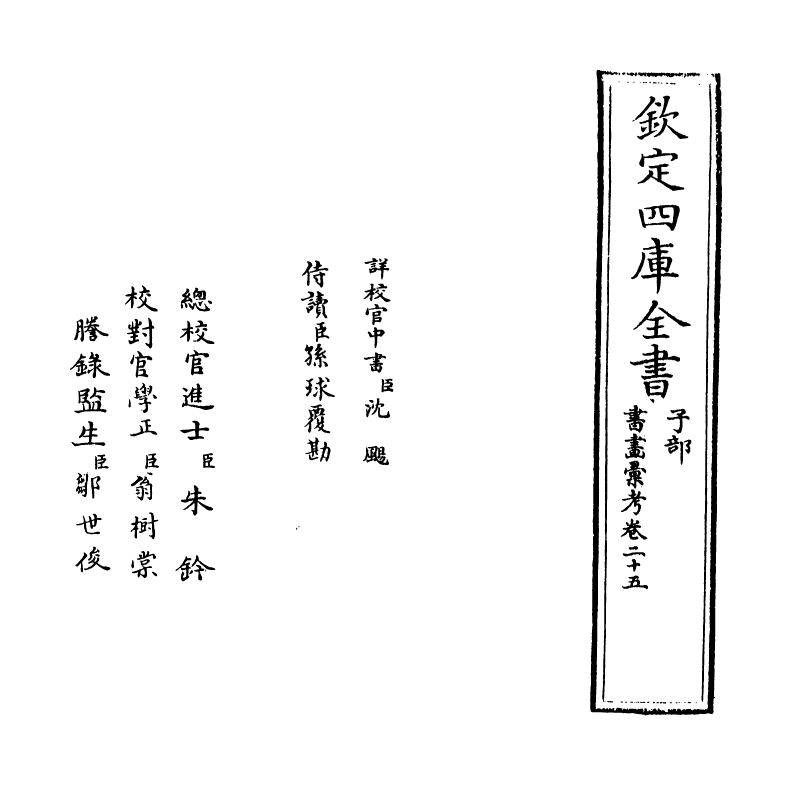 欽定四庫全書
子部
書畫彙考卷二十五
詳校官中書臣沈颺
侍讀臣孫球覆勘
總校官進士臣朱鈐
校對官學正臣翁樹棠
謄錄監生臣鄒世俊